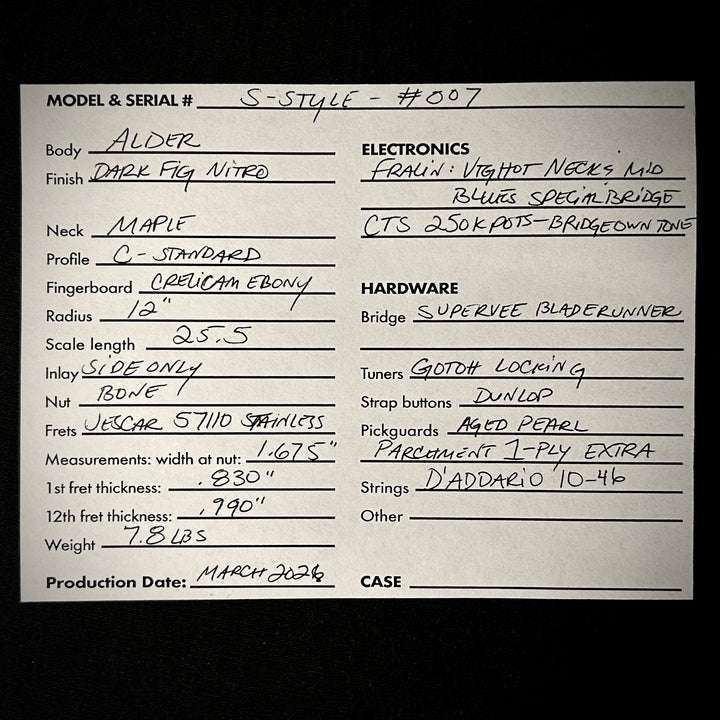 MODEL & SERIAL # S-STYLE - #007
Body ALDER
Finish DARK FIG NITRO
Neck MAPLE
Profile C-STANDARD
Fingerboard CRELICAM EBONY
Radius 12"
Scale length 25.5
Inlay SIDE ONLY
Nut BONE
Frets JESCAR 57110 STAINLESS
Measurements: width at nut: 1.675"
1st fret thickness: .830"
12th fret thickness: .990"
Weight 7.8 LBS
Production Date: MARCH 2026
ELECTRONICS
FRALIN: VTGHOT NECK & MID
BLUES SPECIAL BRIDGE
CTS 250K POTS-BRIDGE OWN TONE
HARDWARE
Bridge SUPERVEE BLADERUNNER
Tuners GOTOH LOCKING
Strap buttons DUNLOP
Pickguards AGED PEARL
PARCHMENT 1-PLY EXTRA
Strings D'ADDARIO 10-46
Other
CASE